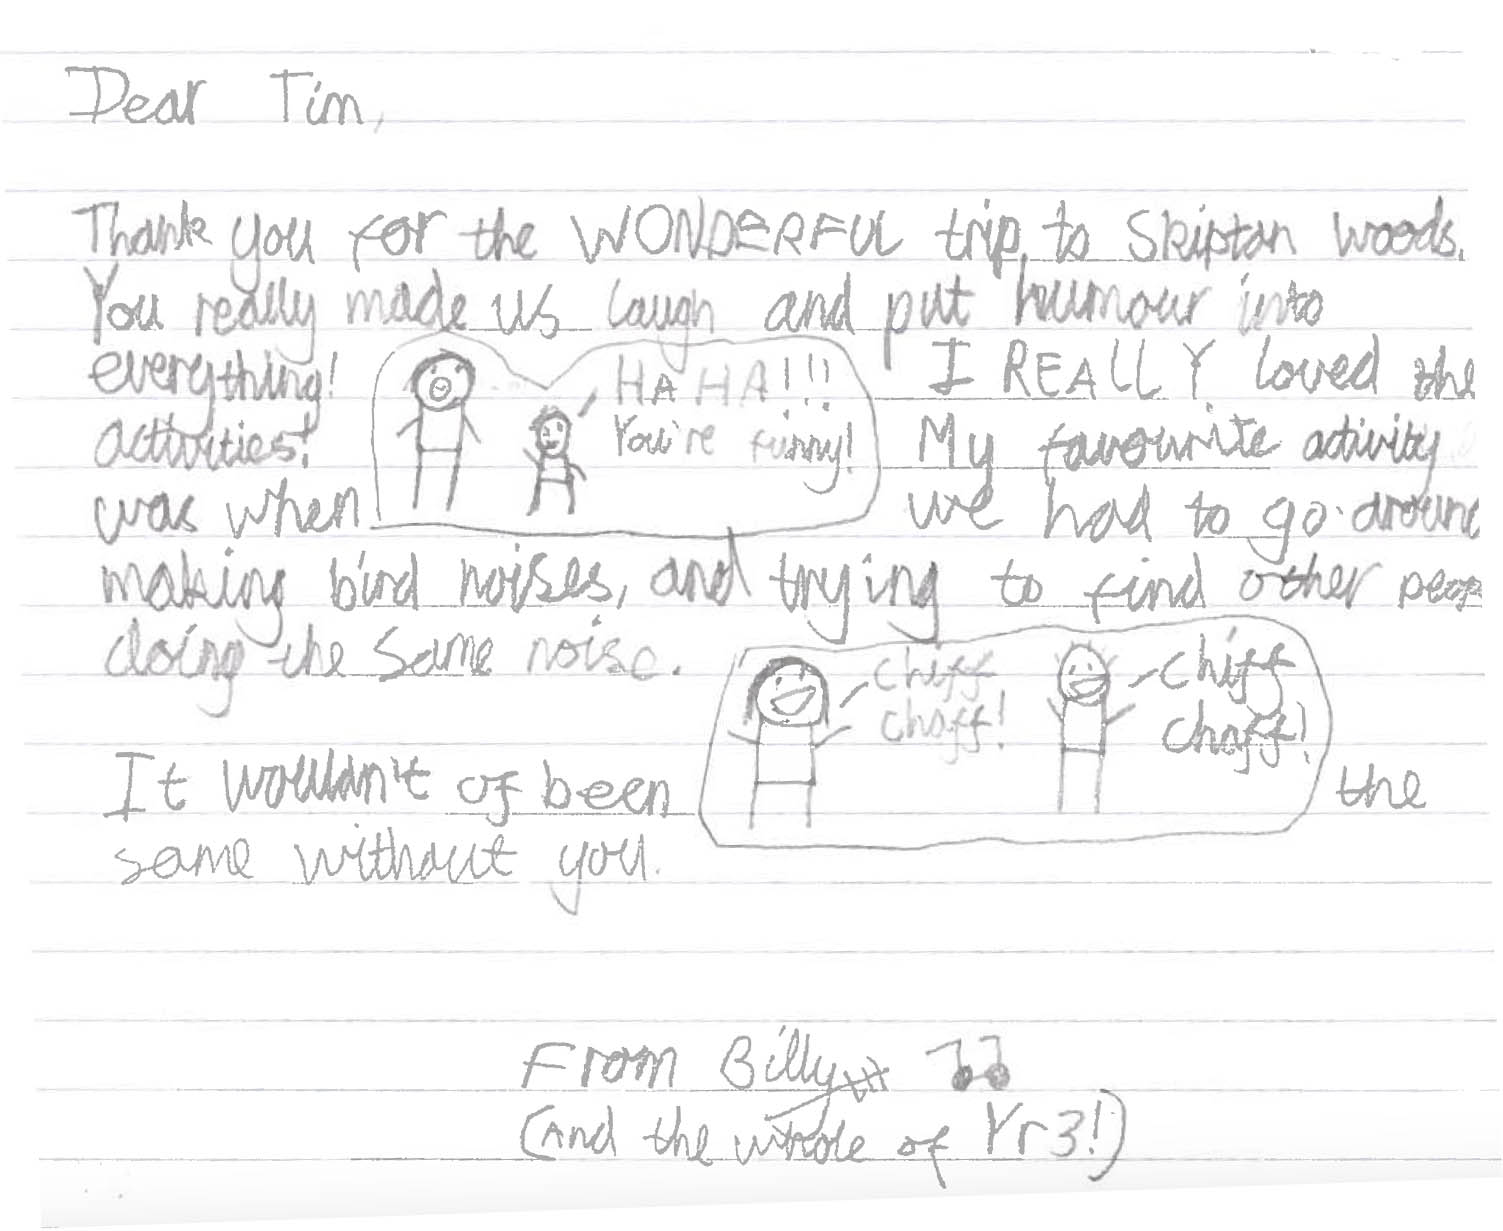 Dear Tim,
Thank you for the WONDERFUL trip to Skipton Woods.
You really made us laugh and put humour into
everything! I REALLY loved the
activities! My favourite activity
was when we had to go around
HA HA!!!
You're funny!
making bird noises, and trying to find other peop
doing the same noise.
chiff
chaff!
chiff
chaff!
It wouldn't of been the
same without you.
From Billy
(And the whole of Yr3!)